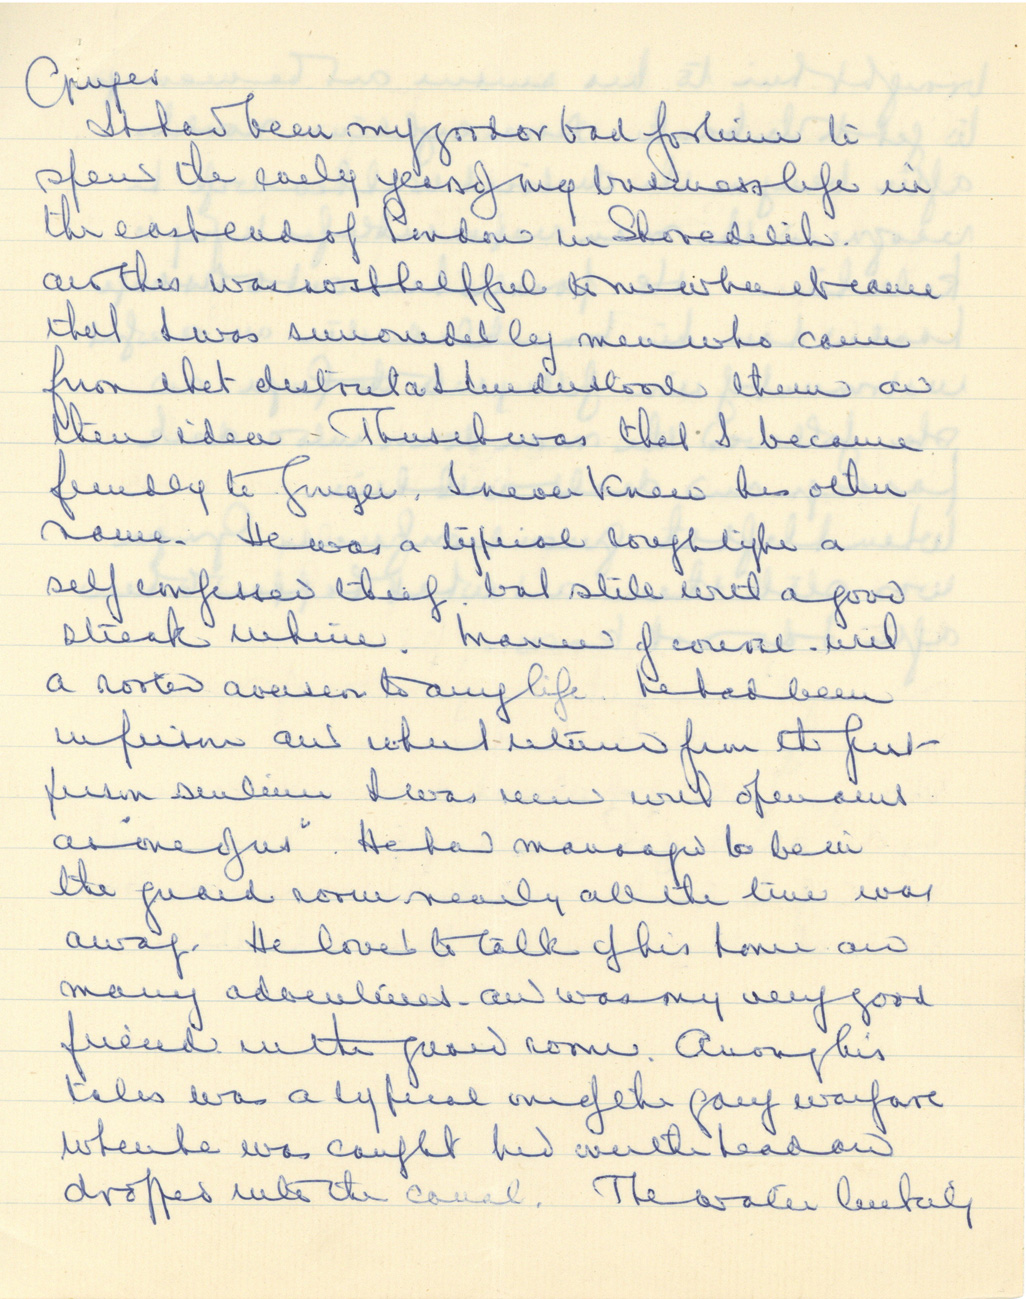 Ginger
It had been my good or bad fortune to
spend the early years of my business life in
the east end of London in Shoreditch.
and this was most helpful to me when it came
that I was surrounded by men who came
from that district as I understood them and
their ideas - Thus it was that I became
friendly to Ginger. I never knew his other
name. He was a typical tough type a
self confessed thief. but still with a good
streak in him. Married of course - with
a rooted aversion to army life. He had been
in prison and when I returned from the first
prison sentence I was received with open arms
as "one of us". He had managed to be in
the guard room nearly all the time I was
away. He loved to talk of his home and
many adventures - and was my very good
friend in the guard room. Among his
tales was a typical one of the gang warfare
when he was caught hit over the head and
dropped into the canal. The water luckily